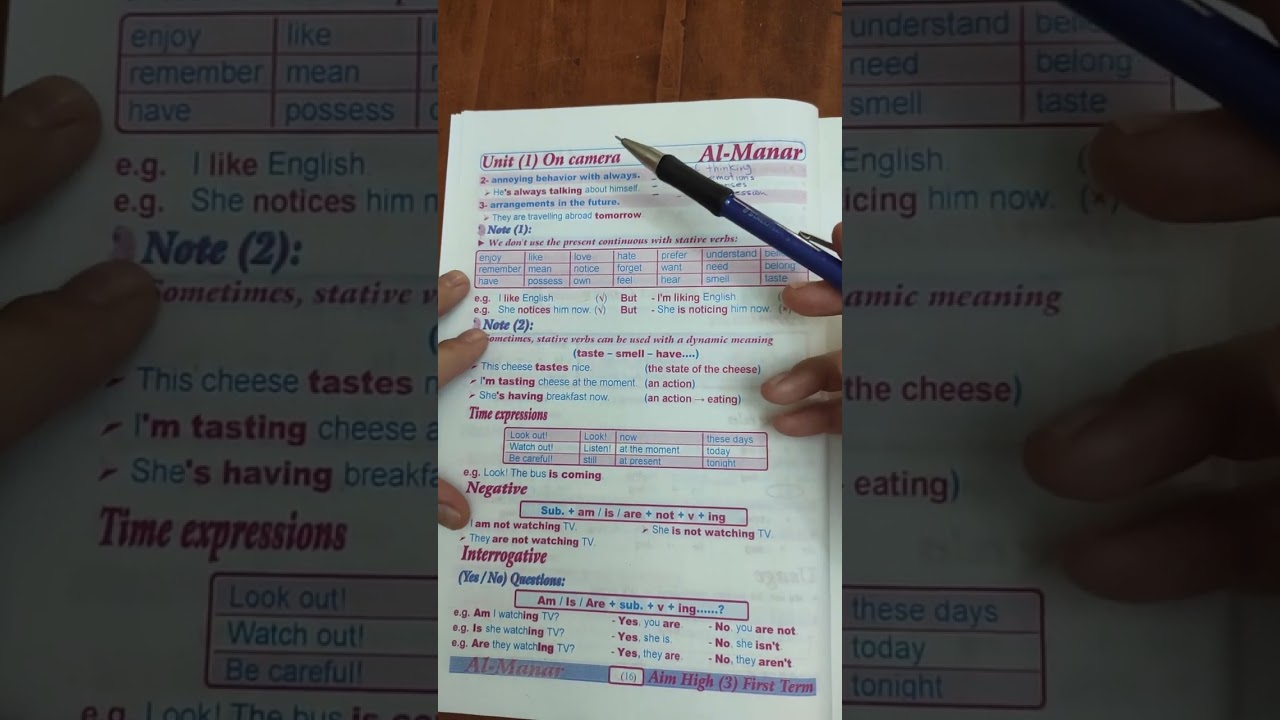 Unit (1) On camera Al-Manar
2- annoying behavior with always. thinking
➤ He's always talking about himself. emotions
3- arrangements in the future.
➤ They are travelling abroad tomorrow
Note (1):
► We don't use the present continuous with stative verbs:
enjoy like love hate prefer understand
remember mean notice forget want need belong
have possess own feel hear smell taste
e.g. I like English (√) But - I'm liking English
e.g. She notices him now. (√) But - She is noticing him now. (×)
Note (2):
Sometimes, stative verbs can be used with a dynamic meaning
(taste – smell – have....)
➤ This cheese tastes nice. (the state of the cheese)
➤ I'm tasting cheese at the moment. (an action)
➤ She's having breakfast now. (an action → eating)
Time expressions
Look out! Look! now these days
Watch out! Listen! at the moment today
Be careful! still at present tonight
e.g. Look! The bus is coming.
Negative
Sub. + am / is / are + not + v + ing
I am not watching TV. ➤ She is not watching TV.
➤ They are not watching TV.
Interrogative
(Yes / No) Questions:
Am / Is / Are + sub. + v + ing......?
e.g. Am I watching TV? - Yes, you are. - No, you are not.
e.g. Is she watching TV? - Yes, she is. - No, she isn't.
e.g. Are they watching TV? - Yes, they are. - No, they aren't.
Al-Manar (16) Aim High (3) First Term